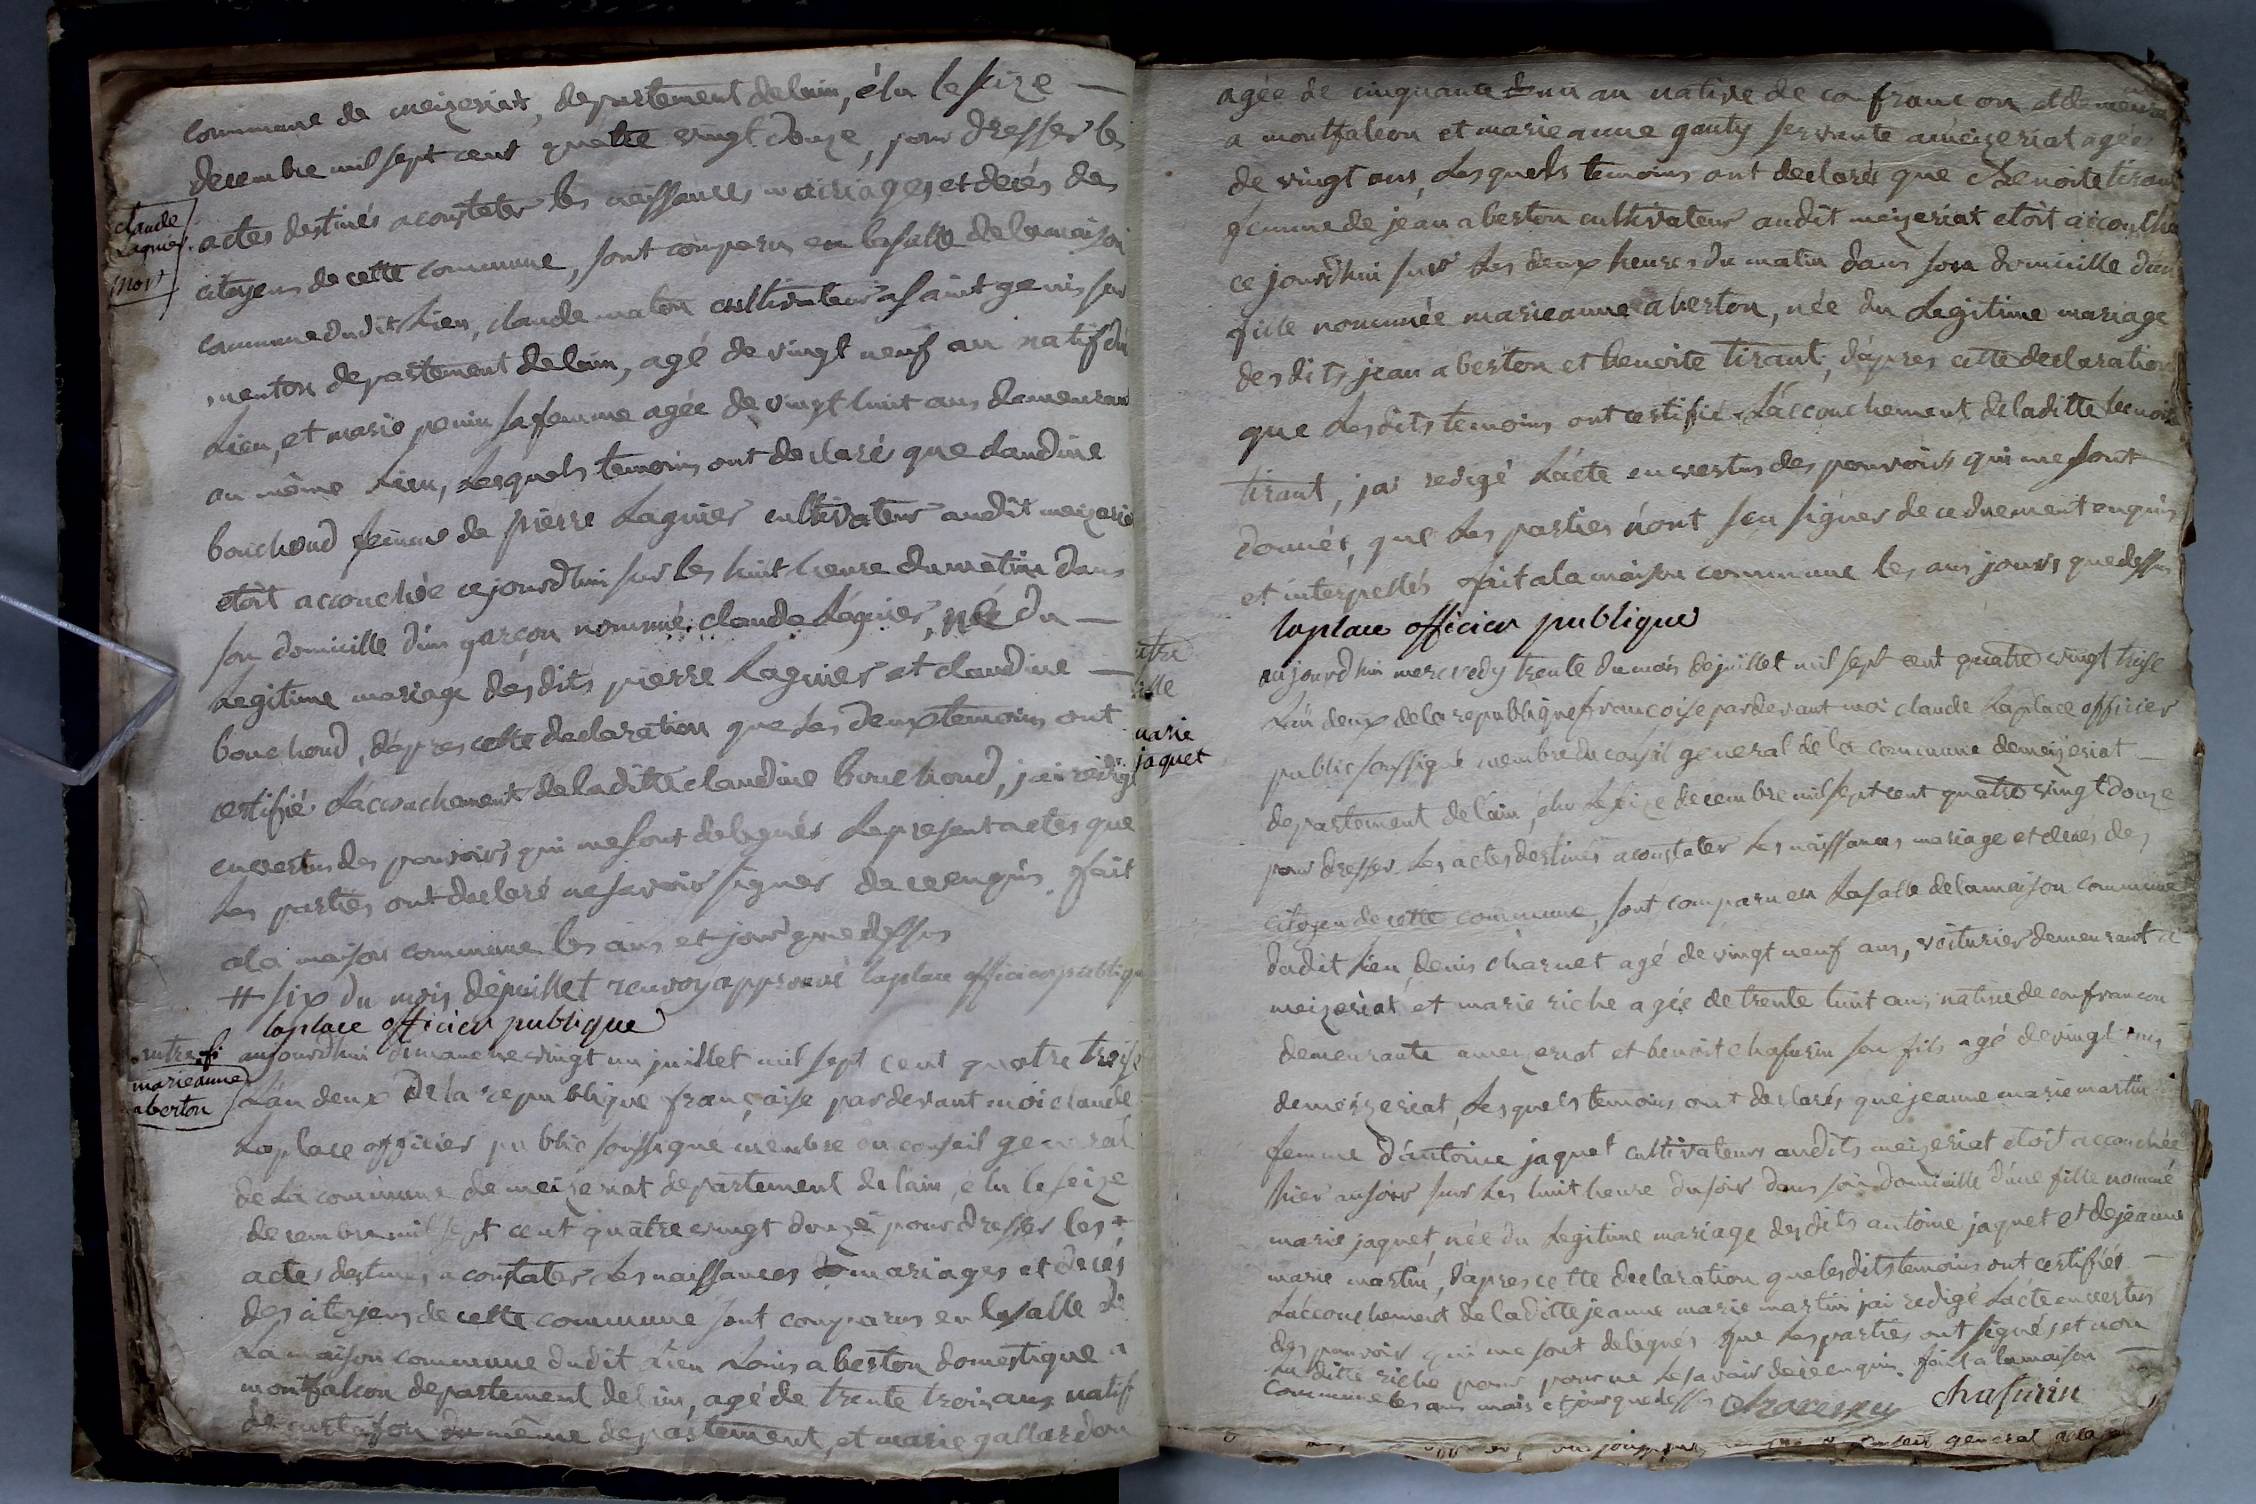 commune de meizeriat, departement de lain, élu le seize
decembre mil sept cent quatre vingt douze, pour dresser les
actes destinés a constater les naissances mariages et decés des
citoyens de cette commune, sont comparu en la salle de la maison
commune dudit Lieu, claude maton cultivateur a saint genis sur
menton departement de lain, agé de vingt neuf an natif du
Lieu, et marie penin sa femme agée de vingt huit ans demeurant
au même Lieu, Lesquels temoins ont declaré que Claudine
bouchoud femme de pierre Lagnier cultivateur audit meizeriat
etoit accouchée ce jourdhui sur les huit heure du matin dans
son domicille d'un garçon nommé claude Lagnier, née du
Legitime mariage des dits pierre Lagnier et claudine
bouchoud, dápres cette declaration que Les deux temoins ont
certifié Láccouchement de laditte claudine bouchoud, jai redigé
en vertus des pouvoirs qui me sont delegués Le present actes que
Les parties ont declaré ne savoir signer de ce enquis. fait
a la maison commune les ans et jour que dessus
# six du mois de juillet renvoy approuvé laplace officier publique
laplace officier publique
claude
Lagnier
mort
autre fi
marieanne
aberton
aujourdhui dimanche vingt un juillet mil sept cent quatre treise
Lán deux de la republique française pardevant moi claude
Laplace officier public soussigné membre du conseil general
de La commune de meizeriat departement de lain, élu le seize
decembre mil sept cent quatre vingt douze pour dresser les
actes destinés a constater Les naissances mariages et decés
des citoyens de cette commune sont comparus en la salle de
La maison commune dudit Lieu Louis aberton domestique a
montfalcon departement de lain, agé de trente trois ans natif
de curtafon du même departement, et marie gallardon
agée de cinquante un an native de confrancon et demeurant
a montfalcon et marie anne gauty servante a meizeriat agée
de vingt ans, Lesquels temoins ont declarés que Benoite tirant
femme de jean aberton cultivateur audit meizeriat etoit accouchée
ce jourdhui sur Les deux heures du matin dans son domicille d'une
fille nommée marieanne aberton, née du Legitime mariage
des dits jean aberton et benoite tirant, dápres cette declaration
que Lesdits temoins ont certifié Láccouchement de laditte benoite
tirant, jai redigé Lácte en vertus des pouvoirs qui me sont
donnés, que Les parties n'ont sçu signer de ce duement enquis
et interpellés fait a la maison commune les ans jours que dessus
laplace officier publique
autre
fille
marie
jaquet
aujourdhui mercredy trente du mois de juillet mil sept cent quatre vingt treise
Lán deux de la republique françoise pardevant moi claude Laplace officier
public soussigné membre du consil general de la commune de meizeriat
departement de lain, élu Le seize decembre mil sept cent quatre vingt douze
pour dresser Les actes destinés a constater Les naissances mariage et decés des
citoyen de cette commune, sont comparu en La salle de la maison commune
dudit Lieu, denis charnet agé de vingt neuf ans, voiturier demeurant a
meizeriat, et marie riche agée de trente huit ans native de confrancon
demeurante a meizeriat et benoit chafurin son fils agé de vingt ans
de meizeriat, Lesquels temoins ont declarés que jeanne marie martin
femme dántoine jaquet cultivateurs audits meizeriat etoit accouchée
hier au soir sur Les huit heure du soir dans son domicille d'une fille nommé
marie jaquet, née du Legitime mariage desdits antoine jaquet et de jeanne
marie martin, dápres cette declaration que lesdits temoins ont certifiés
Láccouchement de laditte jeanne marie martin jai redigé Lácte en vertus
des pouvoir qui me sont delegués que Les parties ont signés et non
La ditte riche pour ne Le savoir de ce enquis. fait a la maison
commune les ans mois et jour que dessus chafurin